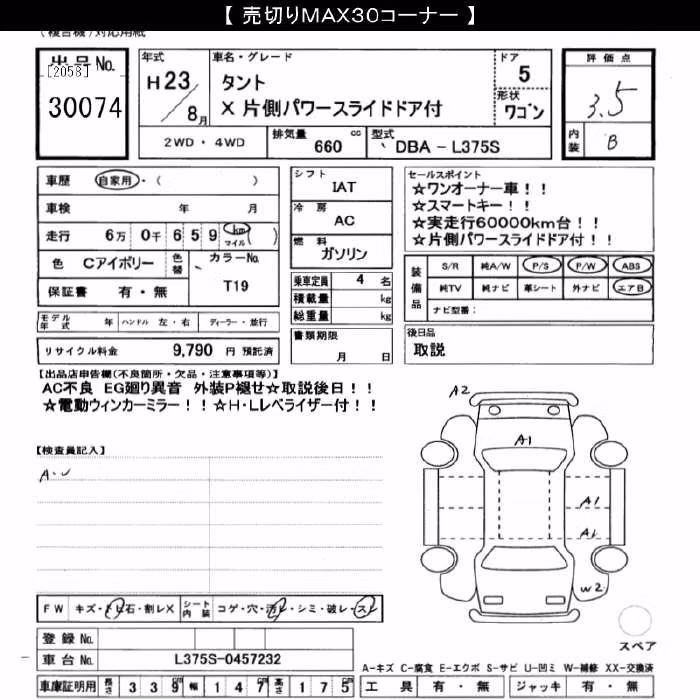 【 売切りMAX30コーナー 】
(複合機)対応用紙
出品No.
[2058]
30074
年式
H23
8月
車名・グレード
タント
X 片側パワースライドドア付
ドア
5
形状
ワゴン
評価点
3.5
内装
B
2WD・4WD
排気量
660 cc
型式
DBA - L375S
車歴 自家用・( )
車検 年 月
走行 6万 0千 6 5 9 km マイル ( )
色 Cアイボリー 色替 カラーNo. T19
保証書 有・無
シフト
IAT
冷房
AC
燃料
ガソリン
乗車定員 4 名
積載量 kg
総重量 kg
セールスポイント
☆ワンオーナー車！！
☆スマートキー！！
☆実走行60000km台！！
☆片側パワースライドドア付！！
装備品
S/R 純A/W P/S P/W ABS
純TV 純ナビ 革シート 外ナビ エアB
ナビ型番：
モデル年式 年 ハンドル 左・右 ディーラー・並行
リサイクル料金 9,790 円 預託済
書類期限
月 日
後日品
取説
【出品店申告欄(不良箇所・欠品・注意事項等)】
AC不良 EG廻り異音 外装P褪せ☆取説後日！！
☆電動ウィンカーミラー！！☆H・Lレベライザー付！！
【検査員記入】
A・U
A2
A1
A1
A1
W2
FW キズ・トビ石・割レX シート内装 コゲ・穴・汚レ・シミ・破レ・スレ
登録No.
車台No. L375S-0457232
車庫証明用 長さ 3 3 9 cm 幅 1 4 7 cm 高さ 1 7 5 cm
スペア
A-キズ C-腐食 E-エクボ S-サビ U-凹ミ W-補修 XX-交換済
工具 有・無 ジャッキ 有・無